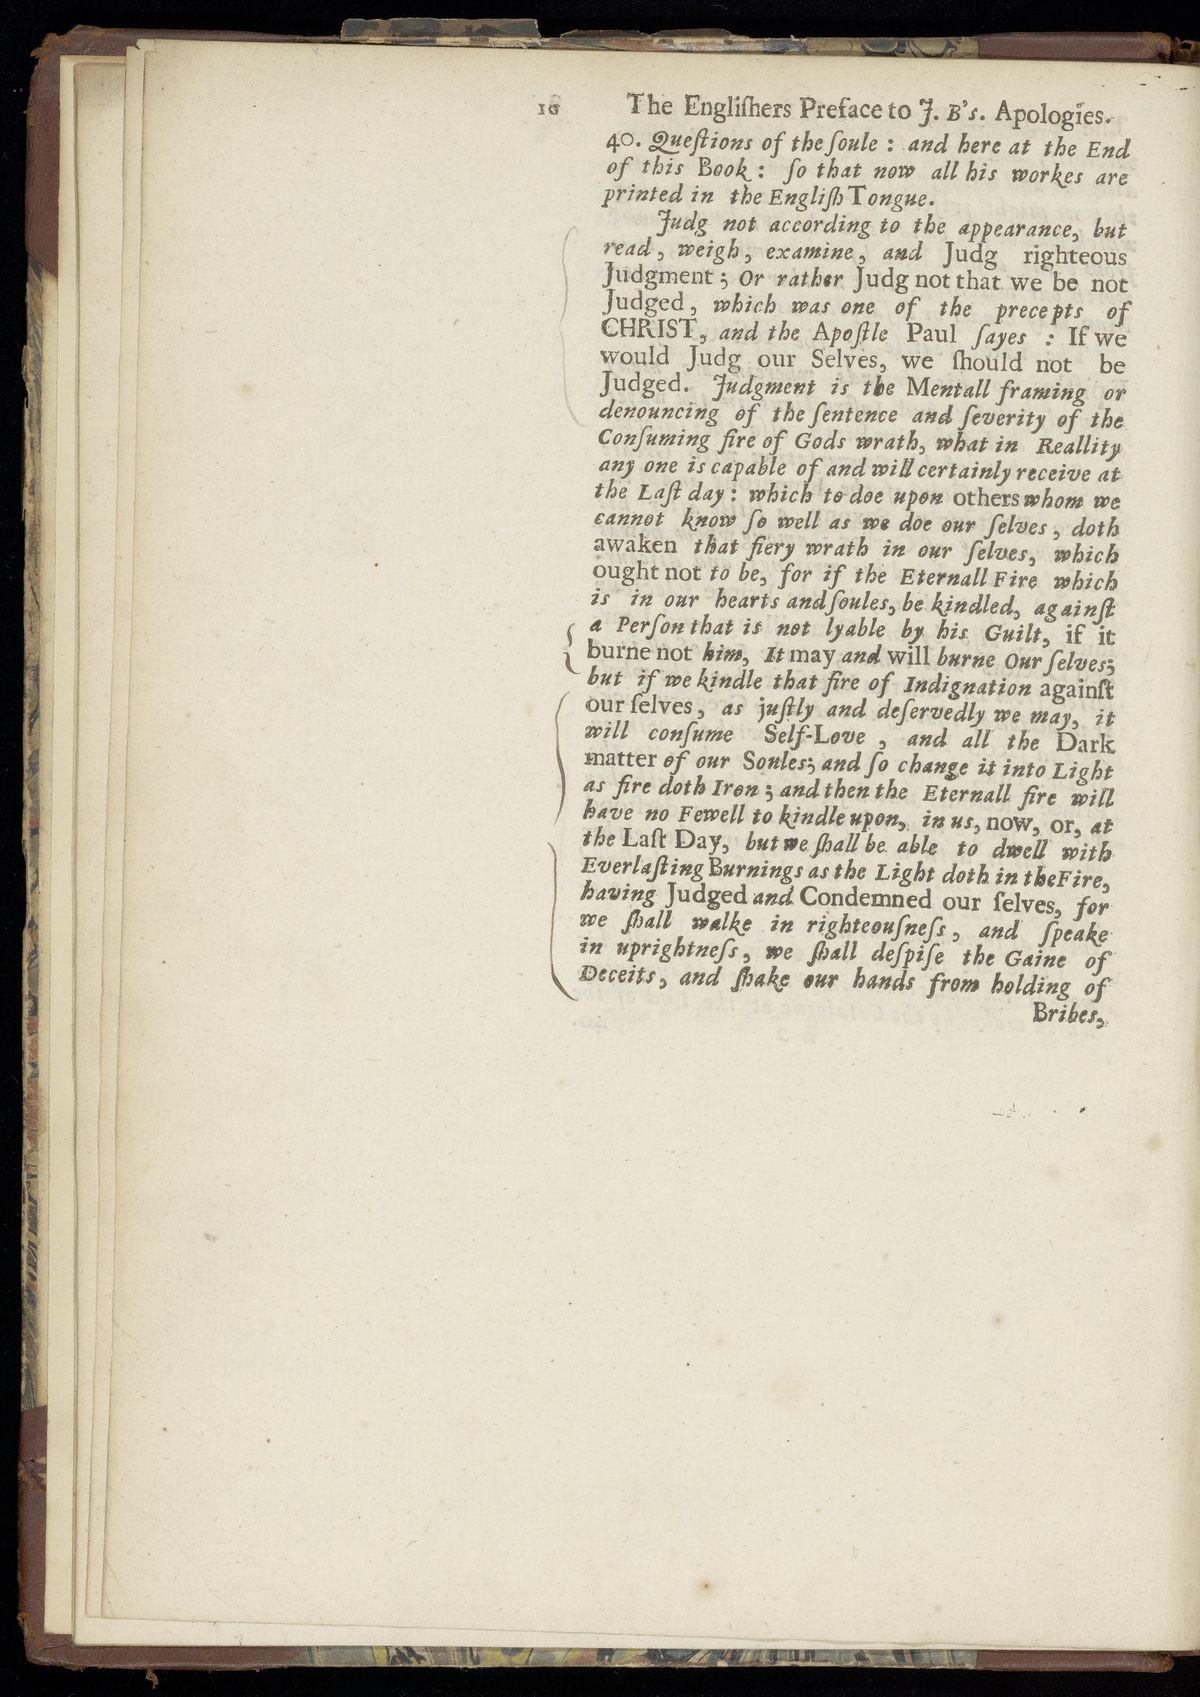 10 The Engliſhers Preface to J. B's. Apologies.
40. Queſtions of the ſoule : and here at the End
of this Book : ſo that now all his workes are
printed in the Engliſh Tongue.
Judg not according to the appearance, but
read, weigh, examine, and Judg righteous
Judgment ; Or rather Judg not that we be not
Judged, which was one of the precepts of
CHRIST, and the Apoſtle Paul ſayes : If we
would Judg our Selves, we ſhould not be
Judged. Judgment is the Mentall framing or
denouncing of the ſentence and ſeverity of the
Conſuming fire of Gods wrath, what in Reallity
any one is capable of and will certainly receive at
the Laſt day : which to doe upon others whom we
cannot know ſo well as we doe our ſelves, doth
awaken that fiery wrath in our ſelves, which
ought not to be, for if the Eternall Fire which
is in our hearts and ſoules, be kindled, againſt
a Perſon that is not lyable by his Guilt, if it
burne not him, It may and will burne Our ſelves;
but if we kindle that fire of Indignation againſt
our ſelves, as juſtly and deſervedly we may, it
will conſume Self-Love , and all the Dark
matter of our Soules; and ſo change it into Light
as fire doth Iron ; and then the Eternall fire will
have no Fewell to kindle upon, in us, now, or, at
the Laſt Day, but we ſhall be able to dwell with
Everlaſting Burnings as the Light doth in the Fire,
having Judged and Condemned our ſelves, for
we ſhall walke in righteouſneſs, and ſpeake
in uprightneſs, we ſhall deſpiſe the Gaine of
Deceits, and ſhake our hands from holding of
Bribes,